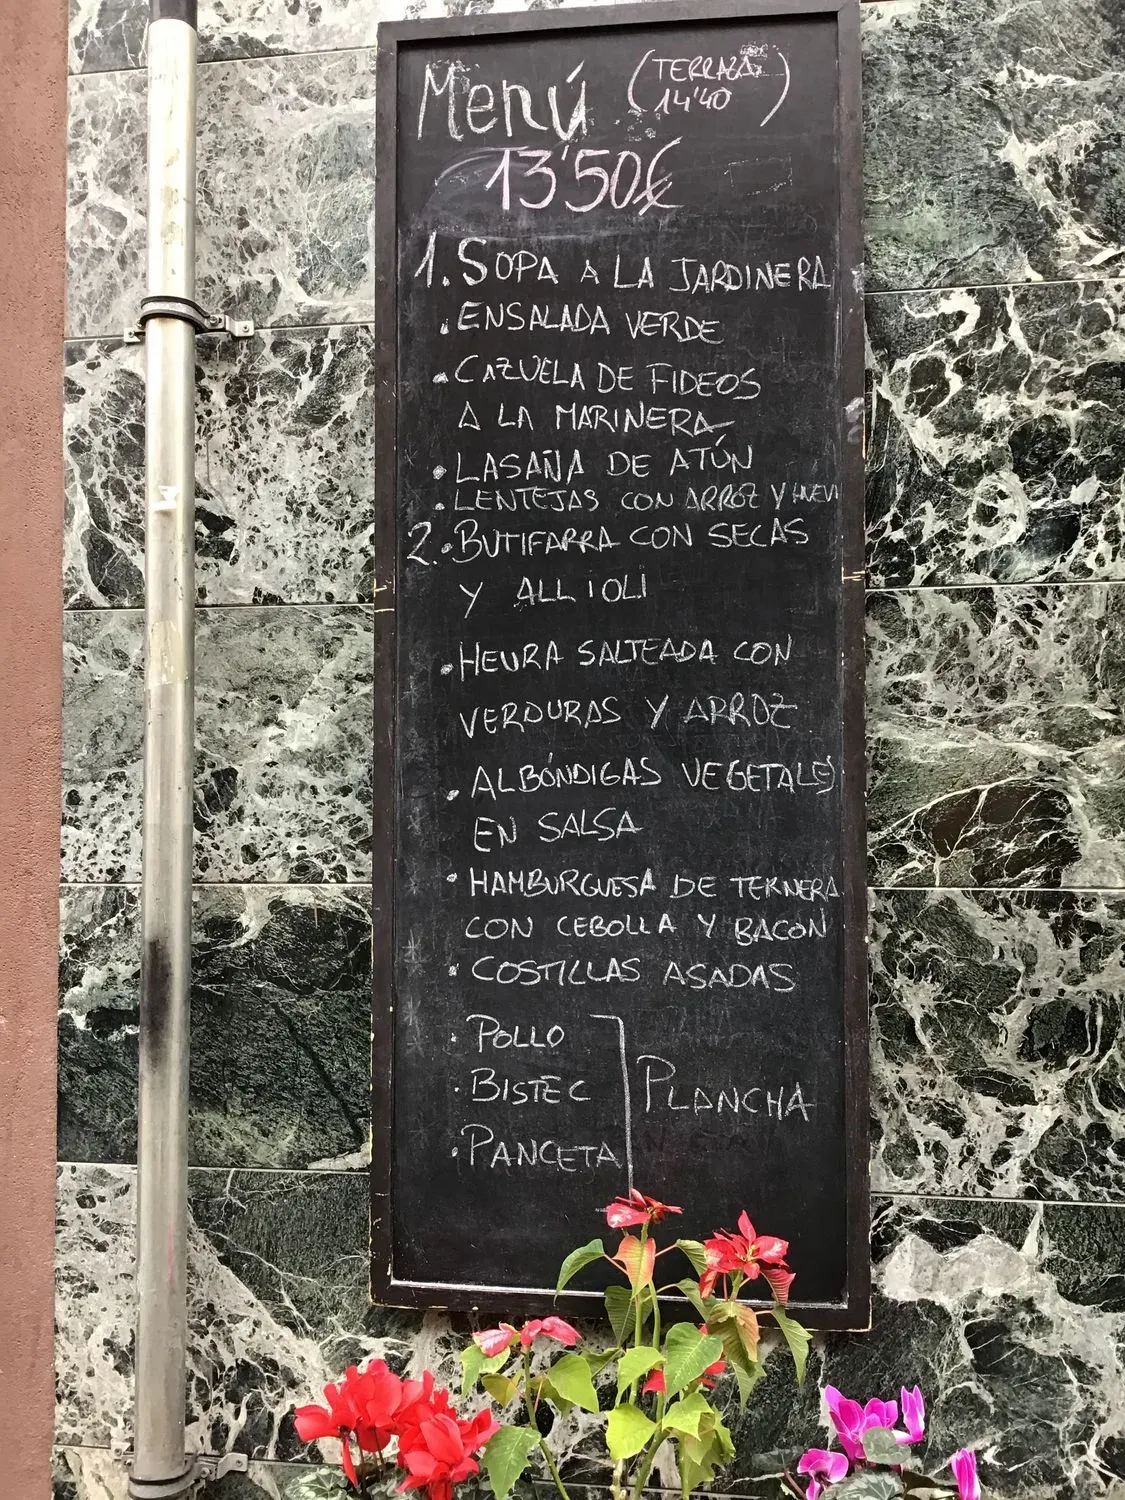 Menú (TERRAZA
14'40)
13'50€
1. SOPA A LA JARDINERA
. ENSALADA VERDE
. CAZUELA DE FIDEOS
A LA MARINERA
. LASAÑA DE ATÚN
. LENTEJAS CON ARROZ Y
2. BUTIFARRA CON SECAS
Y ALLIOLI
. HEURA SALTEADA CON
VERDURAS Y ARROZ
. ALBÓNDIGAS VEGETALES
EN SALSA
. HAMBURGUESA DE TERNERA
CON CEBOLLA Y BACON
. COSTILLAS ASADAS
. POLLO
. BISTEC
PLANCHA
. PANCETA